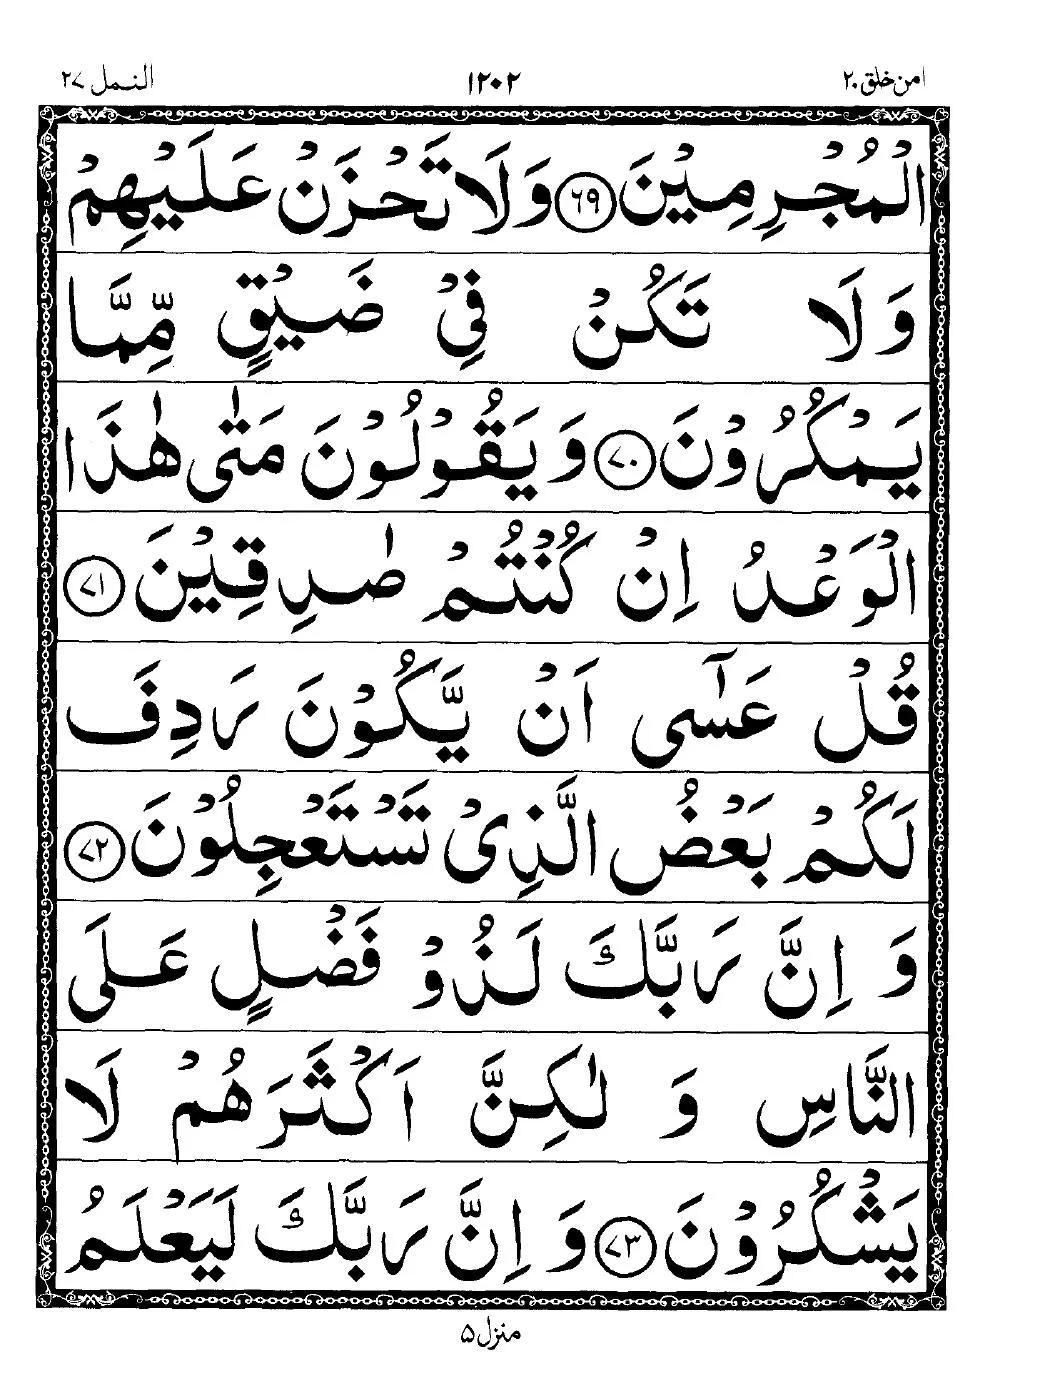 امن خلق ۲۰
۱۲۰۲
النمل ۲۷
الْمُجْرِمِيْنَ ۶۹ وَلَا تَحْزَنْ عَلَيْهِمْ
وَلَا تَكُنْ فِيْ ضَيْقٍ مِّمَّا
يَمْكُرُوْنَ ۷۰ وَيَقُوْلُوْنَ مَتٰى هٰذَا
الْوَعْدُ اِنْ كُنْتُمْ صٰدِقِيْنَ ۷۱
قُلْ عَسٰٓى اَنْ يَّكُوْنَ رَدِفَ
لَكُمْ بَعْضُ الَّذِيْ تَسْتَعْجِلُوْنَ ۷۲
وَ اِنَّ رَبَّكَ لَذُوْ فَضْلٍ عَلَى
النَّاسِ وَ لٰكِنَّ اَكْثَرَهُمْ لَا
يَشْكُرُوْنَ ۷۳ وَ اِنَّ رَبَّكَ لَيَعْلَمُ
منزل ۵